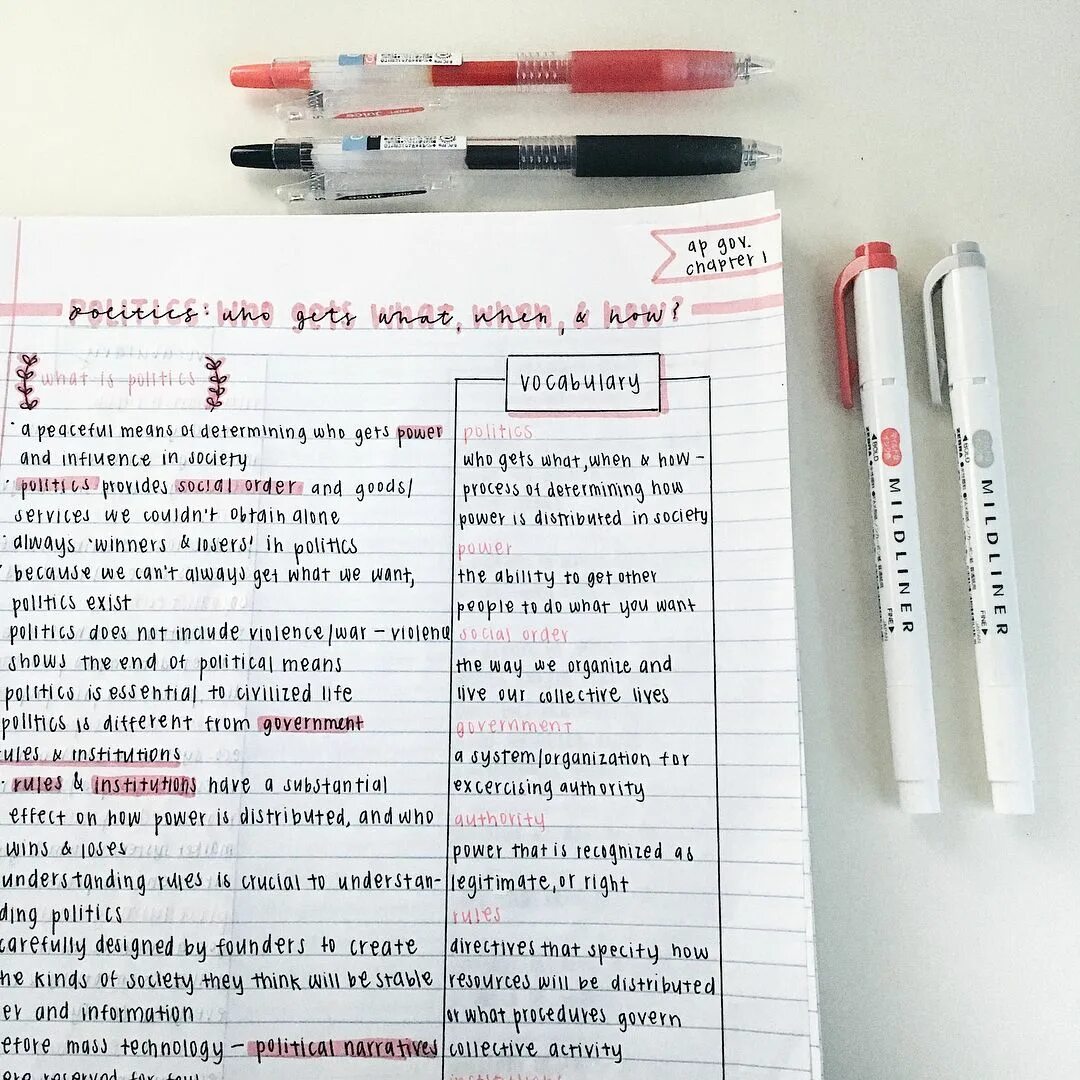 ap gov.
chapter 1
politics: who gets what, when, & how?
what is politics
· a peaceful means of determining who gets power
and influence in society
· politics provides social order and goods/
services we couldn't obtain alone
· always 'winners & losers' in politics
· because we can't always get what we want,
politics exist
politics does not include violence/war – violence
shows the end of political means
politics is essential to civilized life
politics is different from government
rules & institutions
· rules & institutions have a substantial
effect on how power is distributed, and who
wins & loses
understanding rules is crucial to understan-
ding politics
carefully designed by founders to create
he kinds of society they think will be stable
er and information
efore mass technology – political narratives
ere reserved for
vocabulary
politics
who gets what, when & how –
process of determining how
power is distributed in society
power
the ability to get other
people to do what you want
social order
the way we organize and
live our collective lives
government
a system/organization for
excercising authority
authority
power that is recognized as
legitimate, or right
rules
directives that specify how
resources will be distributed
or what procedures govern
collective activity
BOLD
ZEBRA
MILDLINER
FINE
BOLD
ZEBRA
MILDLINER
FINE